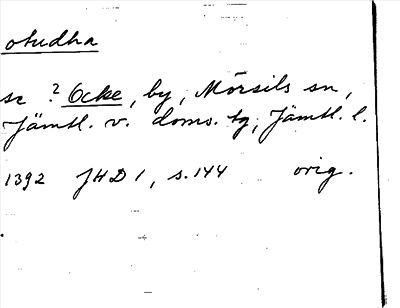 otudha
se ? Ocke, by, Mörsils sn,
Jämtl. v. doms. tg, Jämtl. l.
1392 JHD 1, s. 144 orig.